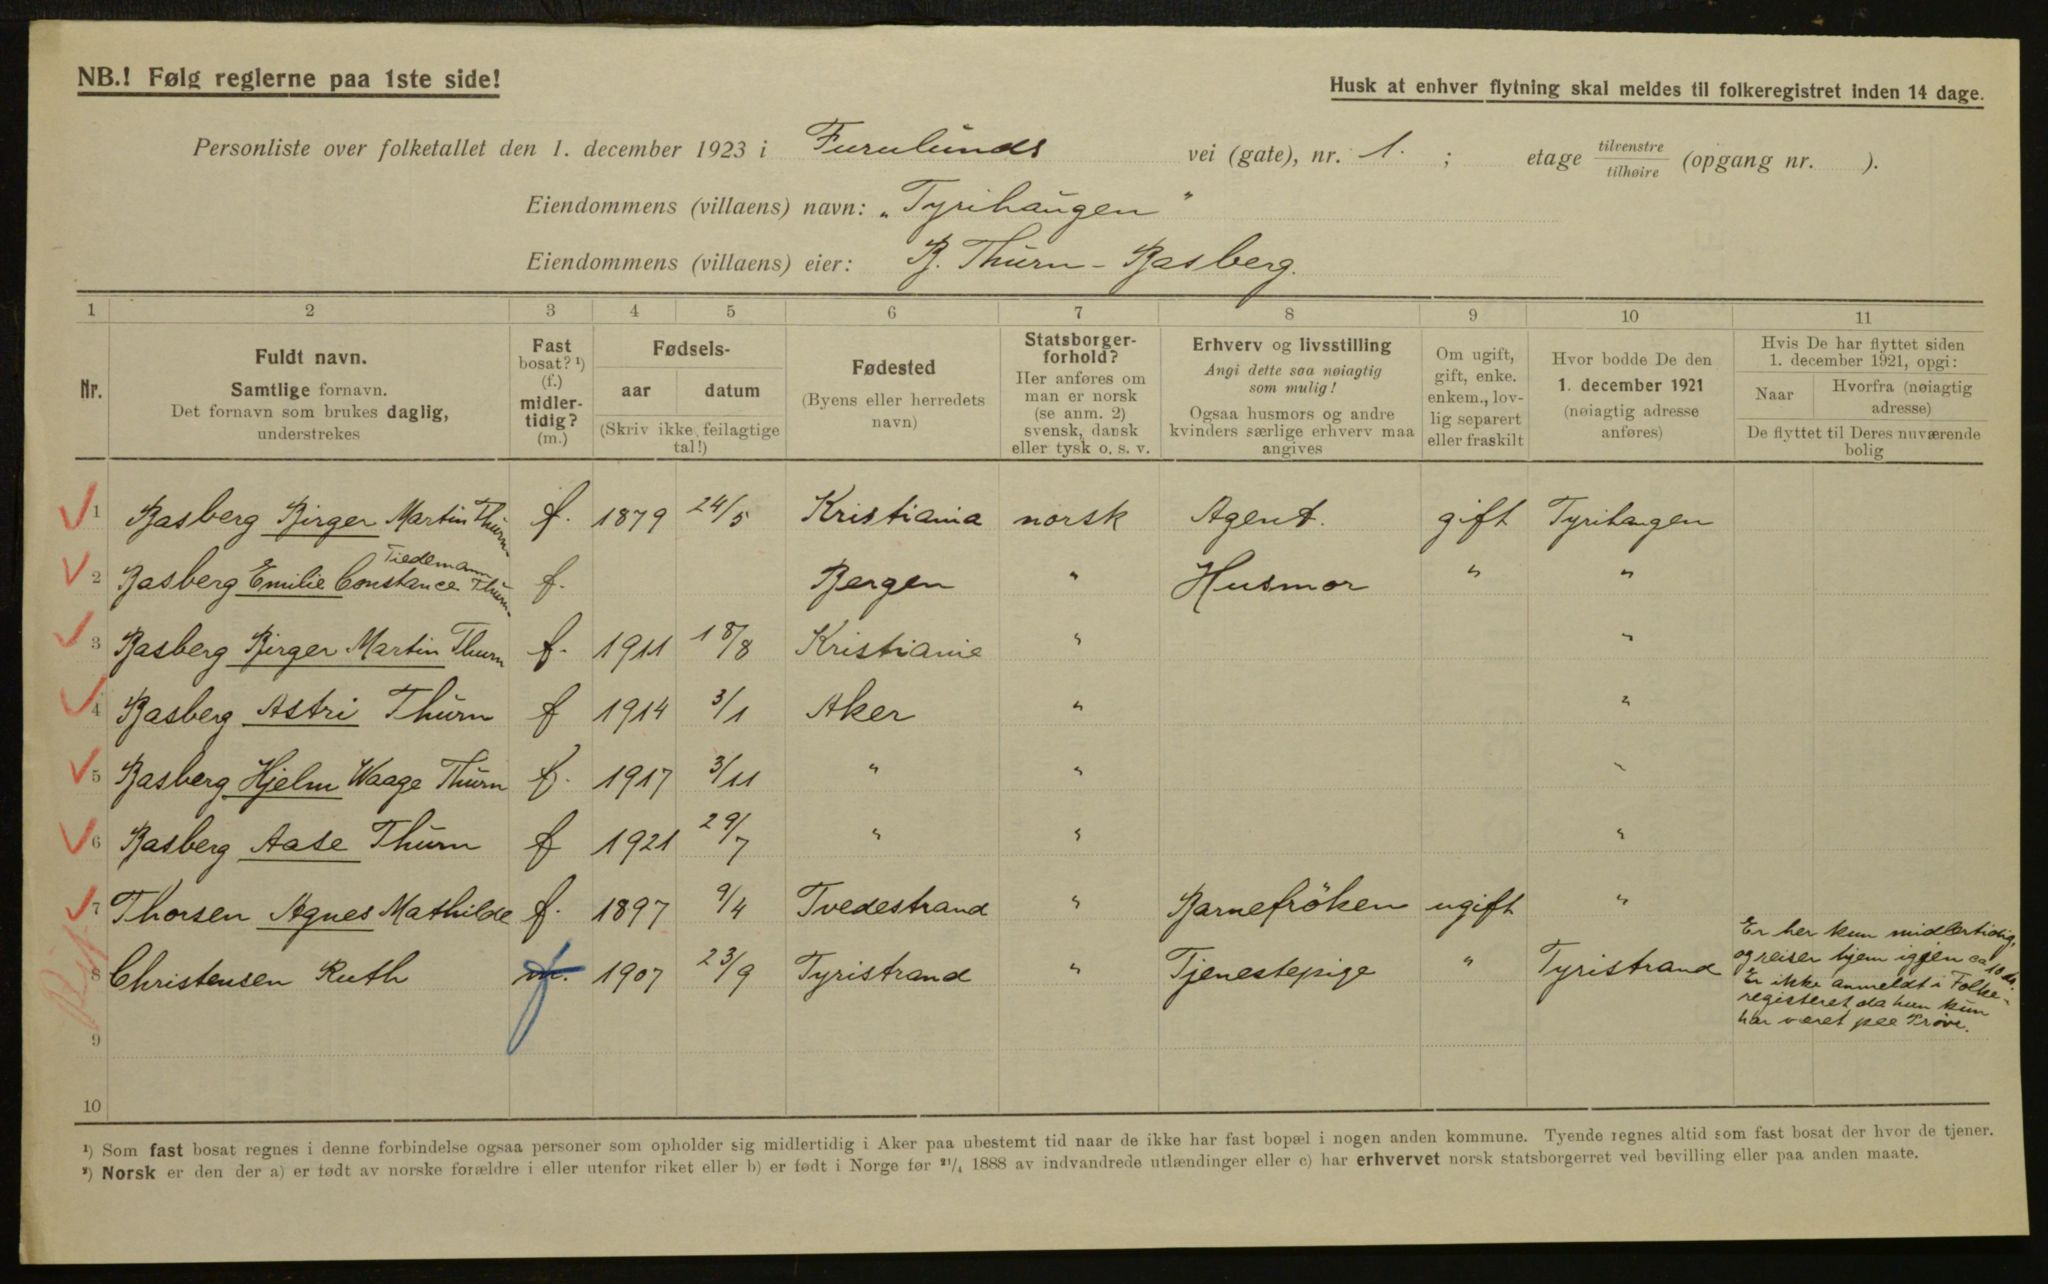 NB.! Følg reglerne paa 1ste side!
Husk at enhver flytning skal meldes til folkeregistret inden 14 dage.
Personliste over folketallet den 1. december 1923 i Furulunds vei (gate), nr. 1. ; etage tilvenstre / tilhøire (opgang nr. ).
Eiendommens (villaens) navn: „Tyrihaugen"
Eiendommens (villaens) eier: B. Thurn-Basberg.
1 2 3 4 5 6 7 8 9 10 11
Nr.
Fuldt navn.
Samtlige fornavn.
Det fornavn som brukes daglig,
understrekes
Fast
bosat? ¹)
(f.)
midler-
tidig?
(m.)
Fødsels-
aar datum
(Skriv ikke feilagtige
tal!)
Fødested
(Byens eller herredets
navn)
Statsborger-
forhold?
Her anføres om
man er norsk
(se anm. 2)
svensk, dansk
eller tysk o. s. v.
Erhverv og livsstilling
Angi dette saa nøiagtig
som mulig!
Ogsaa husmors og andre
kvinders særlige erhverv maa
angives
Om ugift,
gift, enke.
enkem., lov-
lig separert
eller fraskilt
Hvor bodde De den
1. december 1921
(nøiagtig adresse
anføres)
Hvis De har flyttet siden
1. december 1921, opgi:
Naar Hvorfra (nøiagtig
adresse)
De flyttet til Deres nuværende
bolig
1 Basberg Birger Martin Thurn- f. 1879 24/5 Kristiania norsk Agent. gift Tyrihaugen
2 Basberg Emilie Constance Tiedemann Thurn- f. Bergen " Husmor " "
3 Basberg Birger Martin Thurn f. 1911 18/8 Kristiania " "
4 Basberg Astri Thurn f 1914 3/1 Aker " "
5 Basberg Hjelm Waage Thurn f. 1917 3/11 " " "
6 Basberg Aase Thurn f 1921 29/7 " " "
7 Thorsen Agnes Mathilde f. 1897 9/4 Tvedestrand " Barnefröken ugift "
8 Christensen Ruth m. f 1907 23/9 Tyristrand " Tjenestepige " Tyristrand
Er her kun midlertidig,
og reiser hjem iggjen ca 10 ds.
Er ikke anmeldt i Folke-
registeret, da hun kun
har været paa Prøve.
9
10
¹) Som fast bosat regnes i denne forbindelse ogsaa personer som opholder sig midlertidig i Aker paa ubestemt tid naar de ikke har fast bopæl i nogen anden kommune. Tyende regnes altid som fast bosat der hvor de tjener.
²) Norsk er den der a) er født av norske forældre i eller utenfor riket eller b) er født i Norge før ²¹/₄ 1888 av indvandrede utlændinger eller c) har erhvervet norsk statsborgerret ved bevilling eller paa anden maate.